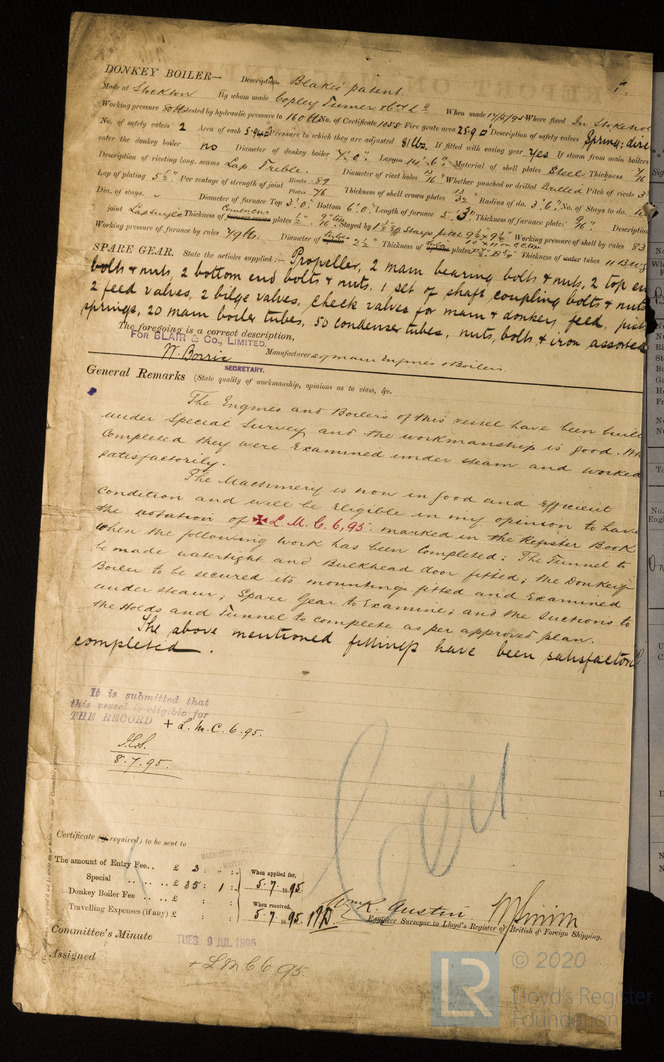 DONKEY BOILER— Description Blake's patent
Made at Stockton By whom made Copley Turner & Co Ld When made 17/5/95 Where fixed In Stokehold
Working pressure 80 lb tested by hydraulic pressure to 160 lb No. of Certificate 1055 Fire grate area 25.9 Description of safety valves Spring; direct
No. of safety valves 2 Area of each 5.940 Pressure to which they are adjusted 81 lbs. If fitted with easing gear Yes If steam from main boilers
enter the donkey boiler no Diameter of donkey boiler 7'.0" Length 14'.6" Material of shell plates Steel Thickness
Description of riveting long. seams Lap Treble. Diameter of rivet holes 13/16" Whether punched or drilled Drilled Pitch of rivets 3"
Lap of plating 5 5/8" Per centage of strength of joint Rivets 89 Plates 76 Thickness of shell crown plates 13/32 Radius of do. 3'.6" No. of Stays to do.
Dia. of stays. " Diameter of furnace Top 3'.0" Bottom 6'.0" Length of furnace 5'.3" Thickness of furnace plates 9/16" Description of
joint Lap single Thickness of plates Stayed by Working pressure of shell by rules 83
Working pressure of furnace by rules 49 lb. Diameter of 2 1/2" Thickness of plates Thickness of water tubes 11 B.W.G
SPARE GEAR. State the articles supplied:— Propeller, 2 main bearing bolts & nuts, 2 top end
bolts & nuts, 2 bottom end bolts & nuts, 1 set of shaft coupling bolts & nuts
2 feed valves, 2 bilge valves, Check valves for main & donkey feed, piston
springs, 20 main boiler tubes, 50 condenser tubes, nuts, bolts & iron assorted
The foregoing is a correct description,
FOR BLAIR & Co., LIMITED,
W. Borrie Manufacturer of main Engines & Boilers
SECRETARY.
General Remarks (State quality of workmanship, opinions as to class, &c.
The Engines and Boilers of this vessel have been built
under Special Survey and the workmanship is good. When
Completed they were Examined under steam and worked
satisfactorily.
The Machinery is now in good and Efficient
Condition and will be Eligible in my opinion to have
the notation of ✠ L.M.C. 6,95. marked in the Register Book
when the following work has been completed: The Tunnel to
be made watertight and Bulkhead door fitted; the Donkey
Boiler to be secured its mountings fitted and Examined
under steam; Spare Gear to Examine; and the Suctions to
the Holds and Tunnel to complete as per approved plan.
The above mentioned fittings have been satisfactorily
completed.
It is submitted that
this vessel is eligible for
THE RECORD + L.M.C. 6.95.
8.7.95.
Certificate (if required) to be sent to
The amount of Entry Fee.. £ 3 : " :
Special .. .. .. £ 35 : 1 :
Donkey Boiler Fee .. .. £ : :
Travelling Expenses (if any) £ : :
When applied for,
5.7.1895.
When received,
5.7.1895.
Wm R. Austin
Engineer Surveyor to Lloyd's Register of British & Foreign Shipping.
Committee's Minute TUES. 9 JUL 1895
Assigned + L.M.C 6.95.
LR © 2020
Lloyd's Register
Foundation